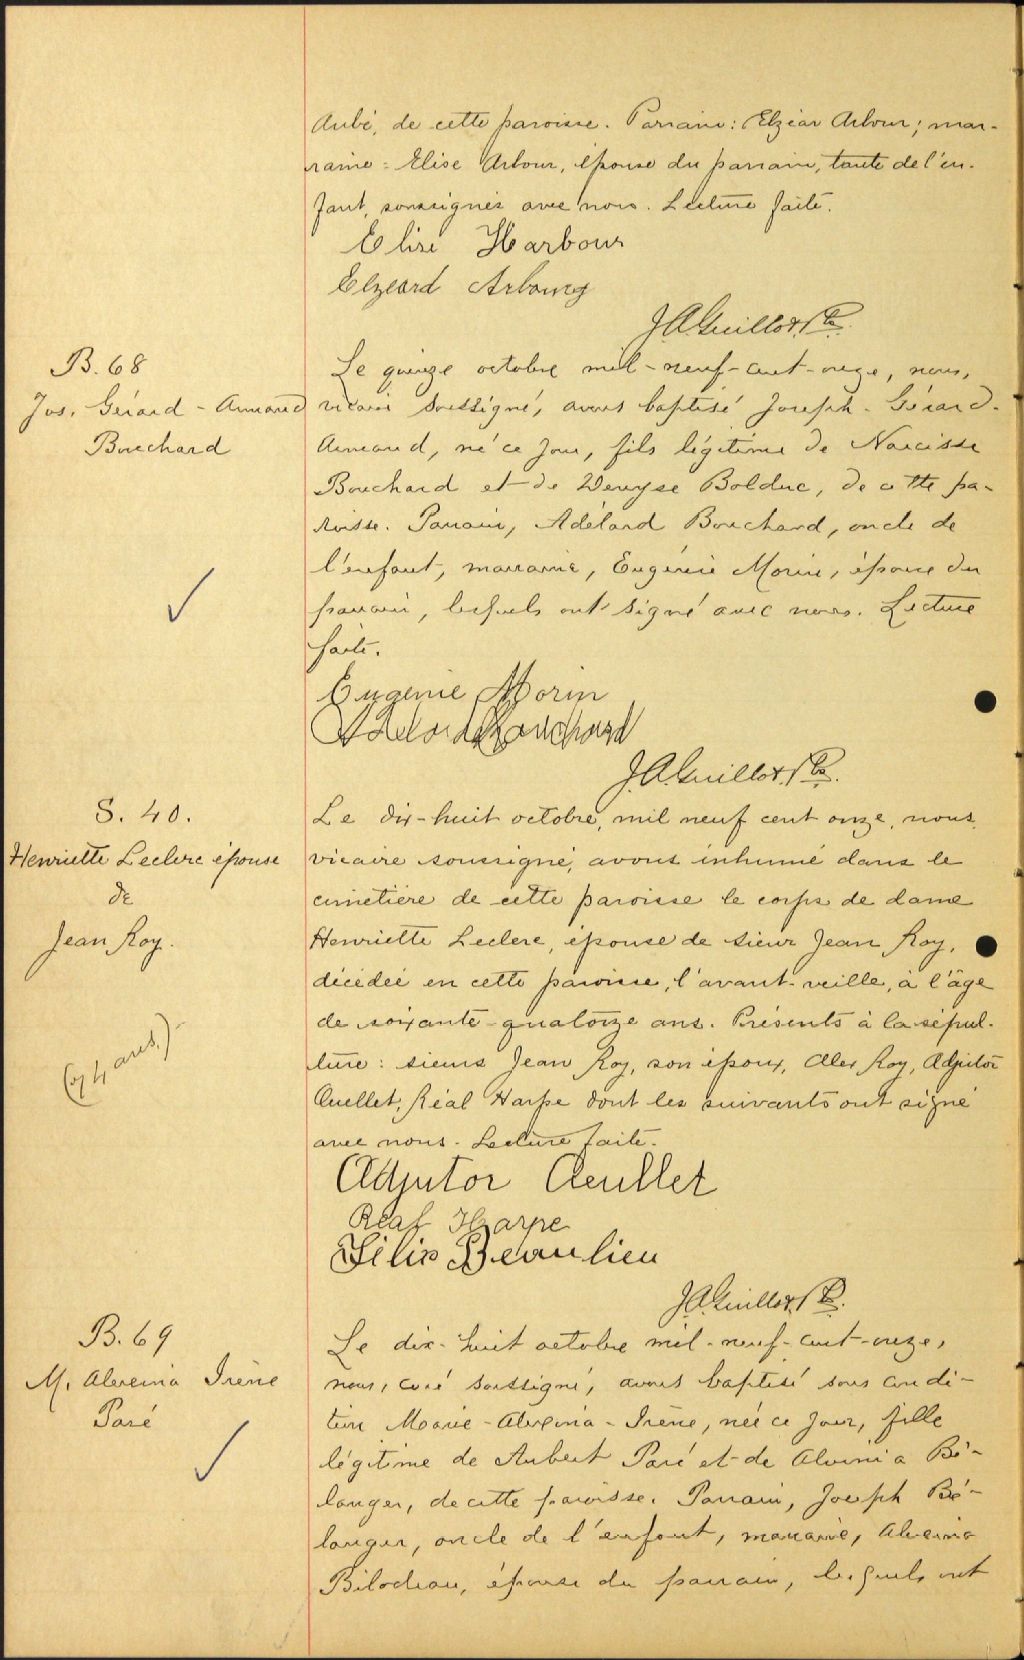 Aubé, de cette paroisse. Parrain: Elzéar Arbour; mar-
raine: Elise Arbour, épouse du parrain, tante de l'en-
fant, soussignés avec nous. Lecture faite.
Elise Harbour
Elzeard Arbourg
J.A. Guillot, Ptre.
B. 68
Jos. Gérard - Armand
Bouchard
Le quinze octobre mil-neuf-cent-onze, nous,
vicaire soussigné, avons baptisé Joseph-Gérard-
Armand, né ce jour, fils légitime de Narcisse
Bouchard et de Deruyse Bolduc, de cette pa-
roisse. Parrain, Adélard Bouchard, oncle de
l'enfant, marraine, Eugénie Morin, épouse du
parrain, lesquels ont signé avec nous. Lecture
faite.
Eugenie Morin
Adelard Bouchard
J.A. Guillot, Ptre.
S. 40.
Henriette Leclerc épouse
de
Jean Roy.
(74 ans.)
Le dix-huit octobre, mil neuf cent onze, nous,
vicaire soussigné, avons inhumé dans le
cimetière de cette paroisse le corps de dame
Henriette Leclerc, épouse de sieur Jean Roy,
décédée en cette paroisse, l'avant-veille, à l'âge
de soixante-quatorze ans. Présents à la sépul-
ture: sieurs Jean Roy, son époux, Alex Roy, Adjutor
Ouellet, Réal Harpe dont les suivants ont signé
avec nous. Lecture faite.
Adjutor Oeullet
Réal Harpe
Félix Beaulieu
J.A. Guillot, Ptre.
B. 69
M. Alveina Irène
Paré
Le dix-huit octobre mil-neuf-cent-onze,
nous, curé soussigné, avons baptisé sous condi-
tion Marie-Alveina-Irène, née ce jour, fille
légitime de Aubert Paré et de Alvinia Bé-
langer, de cette paroisse. Parrain, Joseph Bé-
langer, oncle de l'enfant, marraine, Alveina
Bilodeau, épouse du parrain, lesquels ont